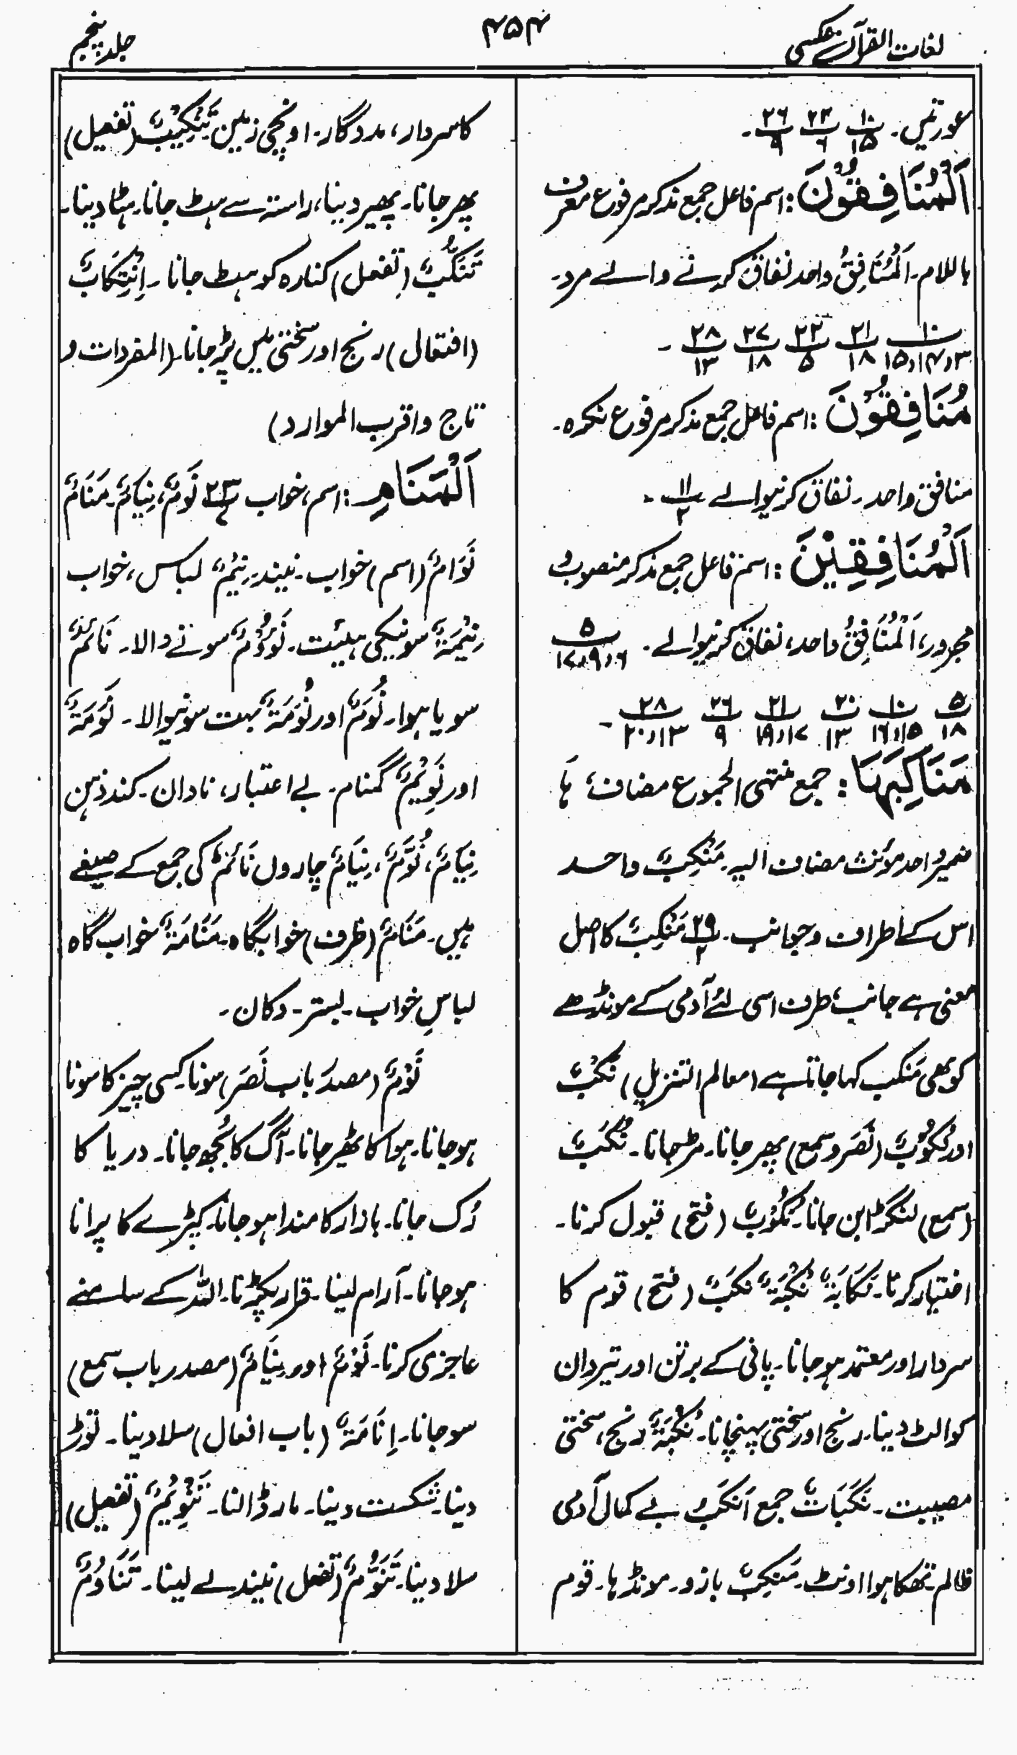 لغات القرآن عکسی
۴۵۴
جلد پنجم
عورتیں۔ ۱۰/۱۵ ۲۴/۶ ۲۶/۹۔
اَلْمُنَافِقُوْنَ: اسم فاعل جمع مذکر مرفوع معرف
باللام۔ اَلْمُنَافِقُ واحد نفاق کرنے والے مرد۔
۱۰/۱۳،۱۴،۱۵ ۲۱/۱۸ ۲۲/۵ ۲۷/۱۸ ۲۸/۱۳۔
مُنَافِقُوْنَ: اسم فاعل جمع مذکر مرفوع نکرہ۔
منافق واحد۔ نفاق کرنیوالے ۱۱/۲۔
اَلْمُنَافِقِیْنَ: اسم فاعل جمع مذکر منصوب و
مجرور، اَلْمُنَافِقُ واحد، نفاق کرنیوالے۔ ۵/۶،۹،۱۷
۵/۱۸ ۱۰/۱۵،۱۶ ۲۰/۱۳ ۲۱/۱۷،۱۹ ۲۶/۹ ۲۸/۱۳،۲۰۔
مَنَاکِبِہَا: جمع منتہی الجموع مضاف، ہَا
ضمیر واحد مؤنث مضاف الیہ۔ مَنْکِبٌ واحد
اس کے اطراف وجوانب۔ ۲۹/۲ مَنْکِبٌ کا اصل
معنی ہے جانب، طرف اسی لئے آدمی کے مونڈھے
کو بھی مَنْکِب کہا جاتا ہے (معالم التنزیل) نَکْبٌ
اور نُکُوْبٌ (نَصَرَ وسمع) پھر جانا۔ مڑ جانا۔ نَکَبٌ
(سمع) لنگڑا بن جانا۔ نُکُوْبٌ (فتح) قبول کرنا۔
اختیار کرنا۔ نَکَابَۃٌ نُکْبَۃٌ نَکَبٌ (فتح) قوم کا
سردار اور معتمد ہو جانا۔ پانی کے برتن اور تیردان
کو الٹ دینا۔ رنج اور سختی پہنچانا۔ نُکْبَۃٌ رنج، سختی
مصیبت۔ نَکَبَاتٌ جمع اَنْکَبُ بے کمال آدمی
ظالم۔ تھکا ہوا اونٹ۔ مَنْکِبٌ بازو۔ مونڈہا۔ قوم
کا سردار، مددگار۔ اونچی زمین تَنْکِیْبٌ (تفعیل)
پھر جانا۔ پھیر دینا، راستہ سے ہٹ جانا۔ ہٹا دینا۔
تَنَکُّبٌ (تفعل) کنارہ کو ہٹ جانا۔ اِنْتِکَابٌ
(افتعال) رنج اور سختی میں پڑ جانا۔ (المفردات و
تاج واقرب الموارد)
اَلْمَنَامِ: اسم، خواب ۲۳/۷ نَوْمٌ، نِیَامٌ۔ مَنَامٌ
نُوَامٌ (اسم) خواب۔ نیند۔ نِیْمٌ لباس، خواب
نِیْمَۃٌ سونیکی ہیئت۔ نَؤُوْمٌ سونے والا۔ نَائِمٌ
سویا ہوا۔ نُوَمٌ اور نُوَمَۃٌ بہت سونیوالا۔ نُوَمَۃٌ
اور نَوِیْمٌ گمنام۔ بے اعتبار، نادان۔ کند ذہن
نِیَامٌ، نُوَّمٌ، نِیَامٌ چاروں نَائِمٌ کی جمع کے صیغے
ہیں۔ مَنَامٌ (ظرف) خوابگاہ۔ مَنَامَۃٌ خواب گاہ
لباسِ خواب۔ بستر۔ دکان۔
نَوْمٌ (مصدر باب نَصَرَ) سونا۔ کسی چیز کا سونا
ہو جانا۔ ہوا کا ٹھیر جانا۔ آگ کا بجھ جانا۔ دریا کا
رُک جانا۔ بازار کا مندا ہو جانا۔ کپڑے کا پرانا
ہو جانا۔ آرام لینا۔ قرار پکڑنا۔ اللہ کے سامنے
عاجزی کرنا۔ نَوْمٌ اور نِیَامٌ (مصدر باب سمع)
سو جانا۔ اِنَامَۃٌ (باب افعال) سلا دینا۔ توڑ
دینا۔ شکست دینا۔ مار ڈالنا۔ تَنْوِیْمٌ (تفعیل)
سلا دینا۔ تَنَوُّمٌ (تفعل) نیند لے لینا۔ تَنَاوُمٌ